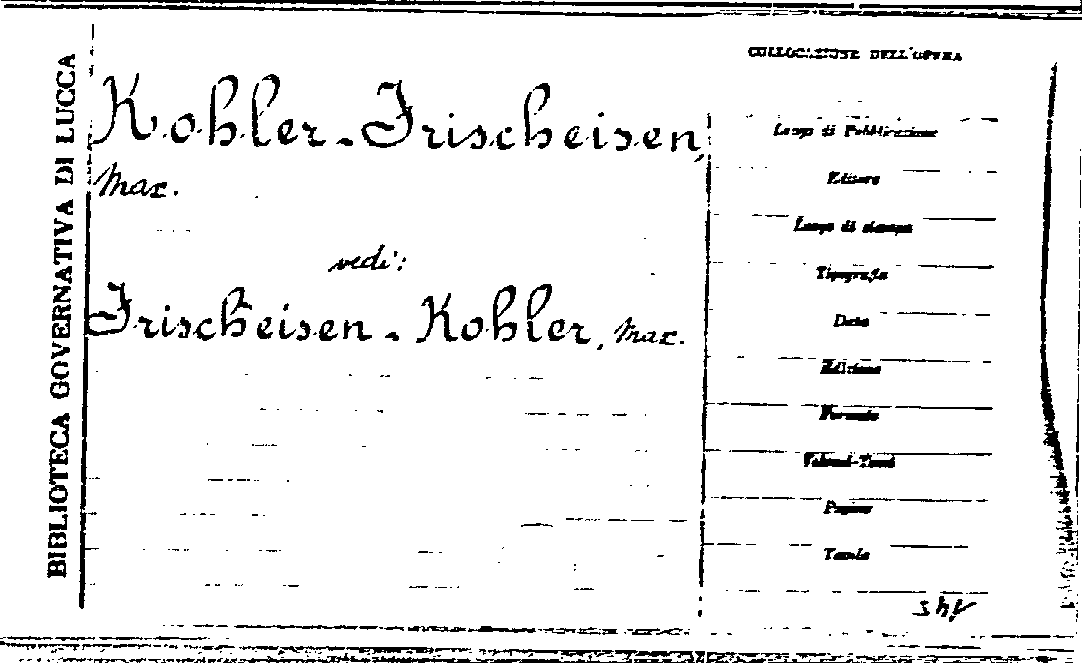 BIBLIOTECA GOVERNATIVA DI LUCCA
Kohler-Frischeisen,
Max.
vedi:
Frischeisen-Kohler, Max.
COLLOCAZIONE DELL'OPERA
Luogo di Pubblicazione
Editore
Luogo di stampa
Tipografia
Data
Edizione
Formato
Volumi-Tomi
Pagine
Tavole